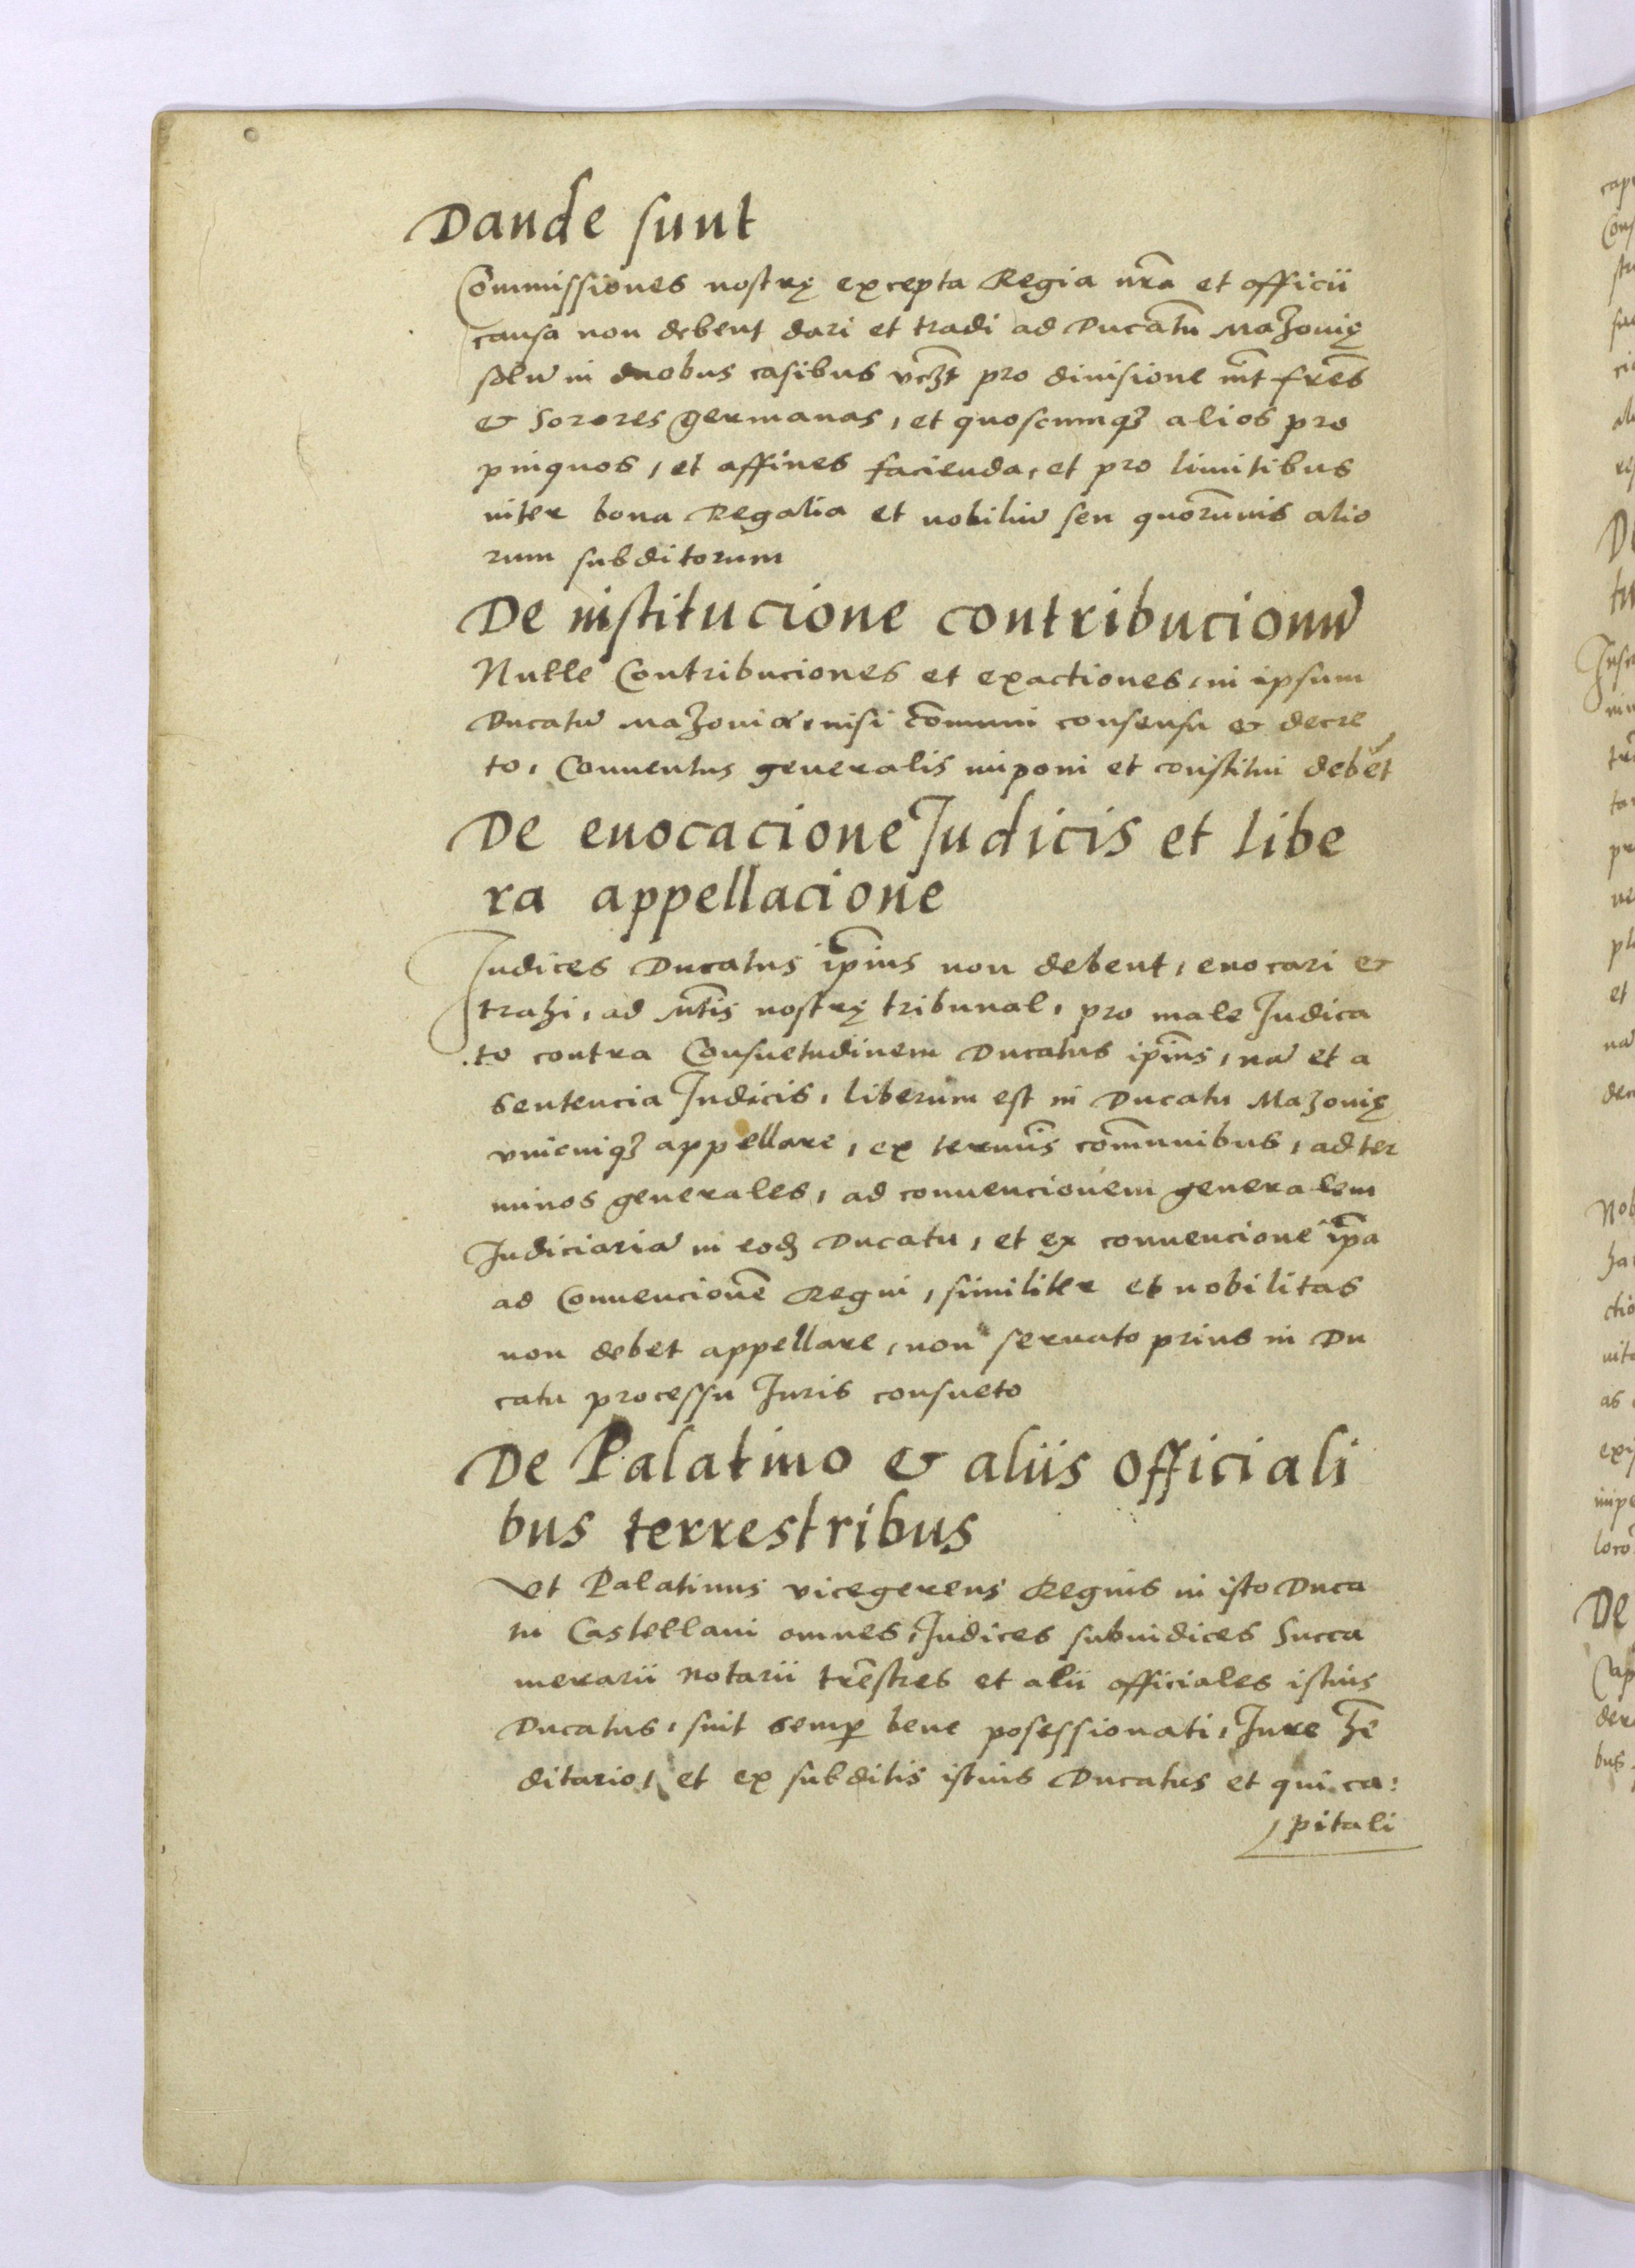 Dande sunt
Commissiones nostrę excepta Regia nr̃a et officii
causa non debent dari et tradi ad Ducatũ Mazovię
solũ in duobus casibus vcȝt pro divisione int̃ fr̃es
& Sorores germanas, et quoscumqȝ alios pro
pinquos, et affines facienda, et pro limitibus
inter bona Regalia et nobiliũ seu quorũvis alio
rum subditorum
De institucione contribucionũ
Nulle Contribuciones et exactiones, in ipsum
Ducatũ Mazoviæ, nisi cõmuni consensu & decre
to, Conventus generalis imponi et constitui debẽt
De evocacione Judicis et libe
ra appellacione
Judices Ducatus ip̃ius non debent, evocari &
trahi, ad Mt̃is nostrę tribunal, pro male Judica
to contra Consuetudinem Ducatus ip̃ius, nã et a
sentencia Judicis, liberum est in Ducatu Mazovię
vnicuiqȝ appellare, ex termĩs cõmunibus, ad ter
minos generales, ad convencionem generalem
Judiciariã in eodȝ Ducatu, et ex convencione ip̃a
ad Convencionẽ Regni, similiter et nobilitas
non debet appellare, non servato prius in Du
catu processu Juris consueto
De Palatino & aliis officiali
bus terrestribus
Vt Palatinus vicegerens Regius in isto Duca
tu Castellani omnes, Judices subiudices Succa
merarii Notarii tr̃estres et alii officiales istius
Ducatus, sint semꝑ bene posessionati, Jure he
ditario, et ex subditis istius Ducatus et qui ca:
pitali